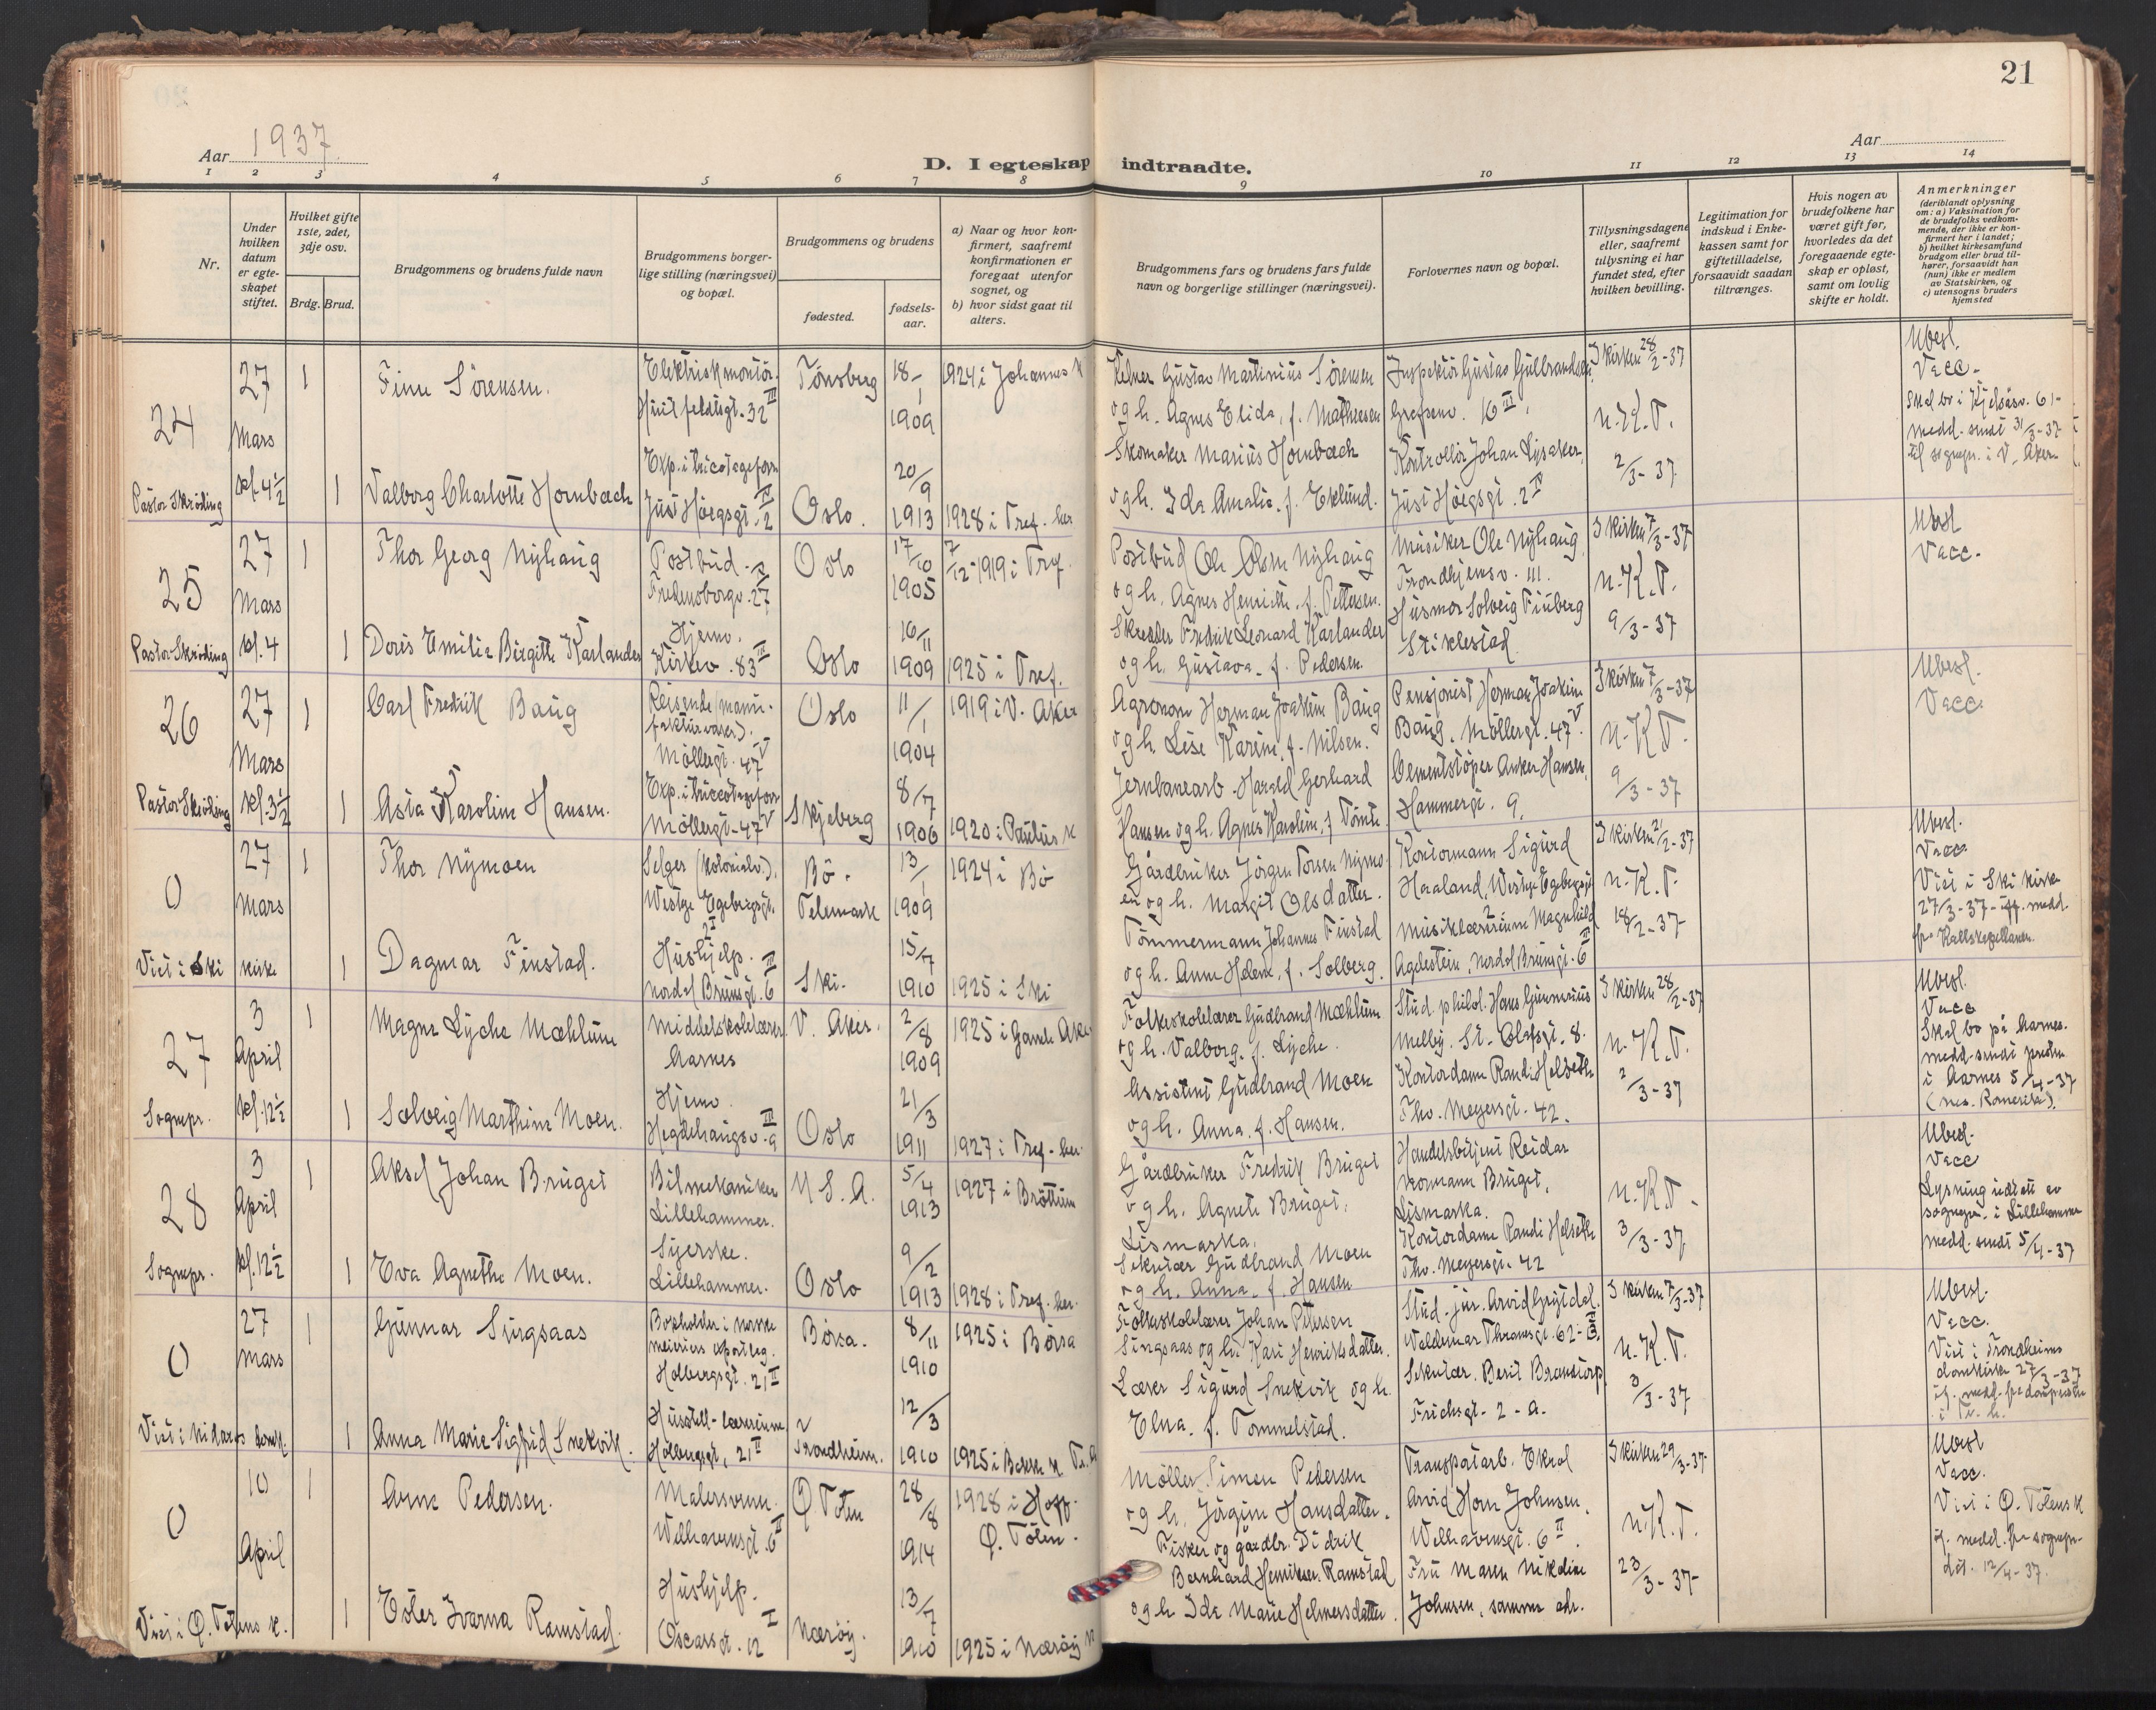 21
Aar 1937
Aar
D. I egteskap indtraadte.
1 2 3 4 5 6 7 8 9 10 11 12 13 14
Nr.
Under hvilken datum er egteskapet stiftet.
Hvilket gifte 1ste, 2det, 3dje osv.
Brdg. Brud.
Brudgommens og brudens fulde navn
Brudgommens borgerlige stilling (næringsvei) og bopæl.
Brudgommens og brudens
fødested.
fødselsaar.
a) Naar og hvor konfirmert, saafremt konfirmationen er foregaat utenfor sognet, og
b) hvor sidst gaat til alters.
Brudgommens fars og brudens fars fulde navn og borgerlige stillinger (næringsvei).
Forlovernes navn og bopæl.
Tillysningsdagene eller, saafremt tillysning ei har fundet sted, efter hvilken bevilling.
Legitimation for indskud i Enkekassen samt for giftetilladelse, forsaavidt saadan tiltrænges.
Hvis nogen av brudefolkene har været gift før, hvorledes da det foregaaende egteskap er opløst, samt om lovlig skifte er holdt.
Anmerkninger
(deriblandt oplysning om: a) Vaksination for de brudefolks vedkommende, der ikke er konfirmert her i landet; b) hvilket kirkesamfund brudgom eller brud tilhører, forsaavidt han (hun) ikke er medlem av Statskirken, og c) utensogns bruders hjemsted
24
27 Mars kl. 4 1/2
Pastor Skröding
1 Finn Sörensen.
Elektriskmontör. Huitfeldtsgt. 32 III
Tönsberg
18/1 1909
1924 i Johannes k
Kelner Gustav Martinius Sörensen
og h. Agnes Elida, f. Mathiesen
Inspektör Gustav Gulbrandsen,
Grefsenv. 16 III.
I kirken 28/2-37
n. K. T.
2/3-37
Ubesl.
Vacc.
Skal bo i Kjelsåsv. 61-
medd. sendt 31/3-37
til sognepr. i V. Aker
1 Valborg Charlotte Hornbæch
Exp. i tricotageforr.
Just Höegsgt. 2 IV
Oslo.
20/9 1913
1928 i Tref. her
Skomaker Marius Hornbæch
og h. Ida Amalia, f. Eklund.
Kontrollör Johan Lysaker,
Just Höegsgt. 2 IV
25
27 Mars kl. 4
Pastor Skröding
1 Thor Georg Nyhaug
Postbud.
Fredensborgv. 27
Oslo
17/10 1905
7/12-1919 i Tref.
Postbud Ole Olsen Nyhaug
og h. Agnes Henriette, f. Pettersen.
Musiker Ole Nyhaug
Trondhjemsv. 111.
I kirken 7/3-37
n. K. T.
9/3-37
Ubesl
Vacc.
1 Doris Emilie Birgitte Karlander
Hjemv.
Kirkev. 83 III
Oslo
16/11 1909
1925 i Tref.
Skredder Fredrik Leonard Karlander
og h. Gustava, f. Pedersen.
Husmor Solveig Finberg
Stiklestad
26
27 Mars kl. 3 1/2
Pastor Skröding
1 Carl Fredrik Baug
Reisende (manufakturvarer).
Möllergt. 47 V
Oslo
11/1 1904
1919 i V. Aker
Agronom Herman Joakim Baug
og h. Lise Karine, f. Nilsen.
Pensjonist Herman Joakim
Baug, Möllergt. 47 V.
I kirken 7/3-37
n. K. T.
9/3-37
Ubesl.
Vacc.
1 Asta Karoline Hansen.
Exp. i tricotageforr
Möllergt. 47 V
Skjeberg
8/7 1906
1920 i Paulus k
Jernbanearb. Harald Gerhard
Hansen og h. Agnes Karoline, f. Tomte.
Cementstöper Anker Hansen,
Hammergt. 9.
0
27 Mars
Viet i Ski kirke
1 Thor Nymoen
Selger (kolonialv.).
Westye Egebergsgt. 2 I
Bö. Telemark
13/1 1909
1924 i Bö
Gårdbruker Jörgen Torsen Nymoen
og h. Margit Olsdatter.
Kontormann Sigurd
Haaland, Westye Egebergsgt 2
I kirken 21/2-37
n. K. T.
18/2-37
Ubesl.
Vacc.
Viet i Ski kirke
27/3-37 iflg. medd.
fr. Kallskapellanen.
1 Dagmar Finstad.
Hushjelp.
Nordal Brunsgt. 6 III
Ski.
15/7 1910
1925 i Ski
Tömmermann Johannes Finstad
og h. Anne Helene, f. Solberg.
Musiklærerinne Magnhild
Agdestein, Nordal Brunsgt. 6 III
27
3 April kl. 12 1/2
Sognepr.
1 Magne Lyche Mæhlum
Middelskolelærer.
Aarnes
V. Aker.
2/8 1909
1925 i Gamle Aker
Folkeskolelærer Gudbrand Mæhlum
og h. Valborg, f. Lyche.
Stud. philol. Hans Gunnerius
Melby, St. Olafsgt. 8.
I kirken 28/2-37
n. K. T.
2/3-37
Ubesl.
Vacc
Skal bo på Aarnes.
medd. sendt presten
i Aarnes 5/4-37
(Nes. Romerike).
1 Solveig Marthine Moen.
Hjemv.
Hegdehaugsv. 9 III
Oslo
21/3 1911
1927 i Tref. her.
Assistent Gudbrand Moen
og h. Anna, f. Hansen.
Kontordame Randi Helseth
Thv. Meyersgt. 42.
28
3 April kl. 12 1/2
Sognepr.
1 Aksel Johan Bruget
Bilmekaniker
Lillehammer.
U.S.A.
5/4 1913
1927 i Bröttum
Gårdbruker Fredrik Bruget
og h. Agnete Bruget,
Lismarka.
Handelsbetjent Reidar
Normann Bruget,
Lismarka.
n. K. T.
3/3-37
Ubesl.
Vacc
Lysning utstedt av
sognepr. i Lillehammer
medd. sendt 5/4-37
1 Eva Agnethe Moen.
Syerske.
Lillehammer.
Oslo
9/2 1913
1928 i Tref. her.
Sekretær Gudbrand Moen
og h. Anna, f. Hansen
Kontordame Randi Helseth
Thv. Meyersgt. 42
0
27 Mars
Viet i Nidaros domk.
1 Gunnar Singsaas
Bokholder i norske
meieriers eksportlag.
Holbergsgt. 21 II
Börsa.
8/11 1910
1925 i Börsa
Folkeskolelærer Johan Petersen
Singsaas og h. Kari Henriksdatter.
Stud. jur. Arvid Grytdal.
Waldemar Thranesgt. 62
I kirken 7/3-37
n. K. T.
3/3-37
Ubesl.
Vacc.
Viet i Trondheims
domkirke 27/3-37
1 Anna Marie Sigfrid Snekvik.
Husstell-lærerinne
Holbergsgt. 21 II
Trondheim.
12/3 1910
1925 i Bakke k.
Lærer Sigurd Snekvik og h.
Elna, f. Tommelstad.
Sekretær Berit Brandtorp
Frichsgt. 2 a.
0
10 April
Viet i Ø. Totens k.
1 Arne Pedersen.
Malersvenn.
Welhavensgt. 6 II
Ø Toten
28/8 1914
1928 i Hoff
Ø. Toten.
Möller Simen Pedersen
og h. Jörgine Hansdatter.
Transportarb. Ekrol
Arvid Horn Johnsen,
Welhavensgt. 6 II.
I kirken 29/3-37
n. K. T.
23/3-37
Ubesl
Vacc.
Viet i Ø. Totens k
12/4-37.
1 Ester Ivarna Ramstad.
Hushjelp.
Oscarsgt. 12 I
Næröy.
13/7 1910
1925 i Næröy k
Fisker og gårdbr. Didrik
Bernhard Henriksen Ramstad
og h Ida Marie Helmersdatter.
Fru Maren Nikoline
Johnsen, samme adr.